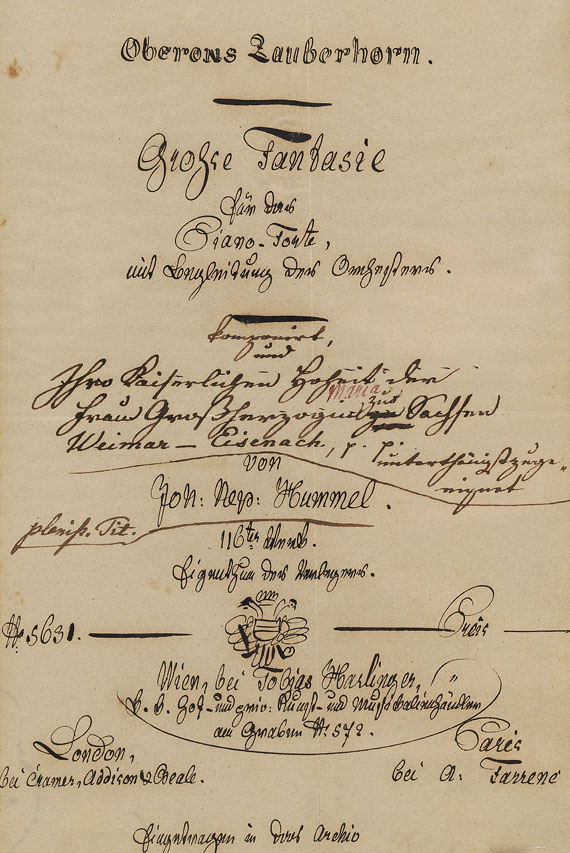 Oberons Zauberhorn.
Große Fantasie
für das
Piano-Forte,
mit Begleitung des Orchesters.
komponirt,
und
Ihro Kaiserlichen Hoheit der
Maria
Frau Großherzogin zu Sachsen
Weimar – Eisenach, p. p.
unterthänigst zuge-
eignet
von
Joh: Nep: Hummel.
pleniss. Tit.
116tes Werk.
Eigenthum des Verlegers.
No. 5631.
Preis
Wien, bei Tobias Haslinger,
k. k. Hof- und priv: Kunst- und Musikalienhändler
am Graben No. 572.
London,
bei Cramer, Addison & Beale.
Paris
bei A: Farrenc
Eingetragen in das Archiv